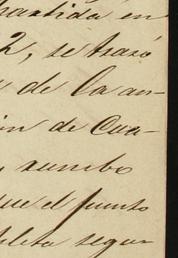 partida en
2, se trazó
de la an-
ón de Cua-
rumbo
que el punto
pleta segun